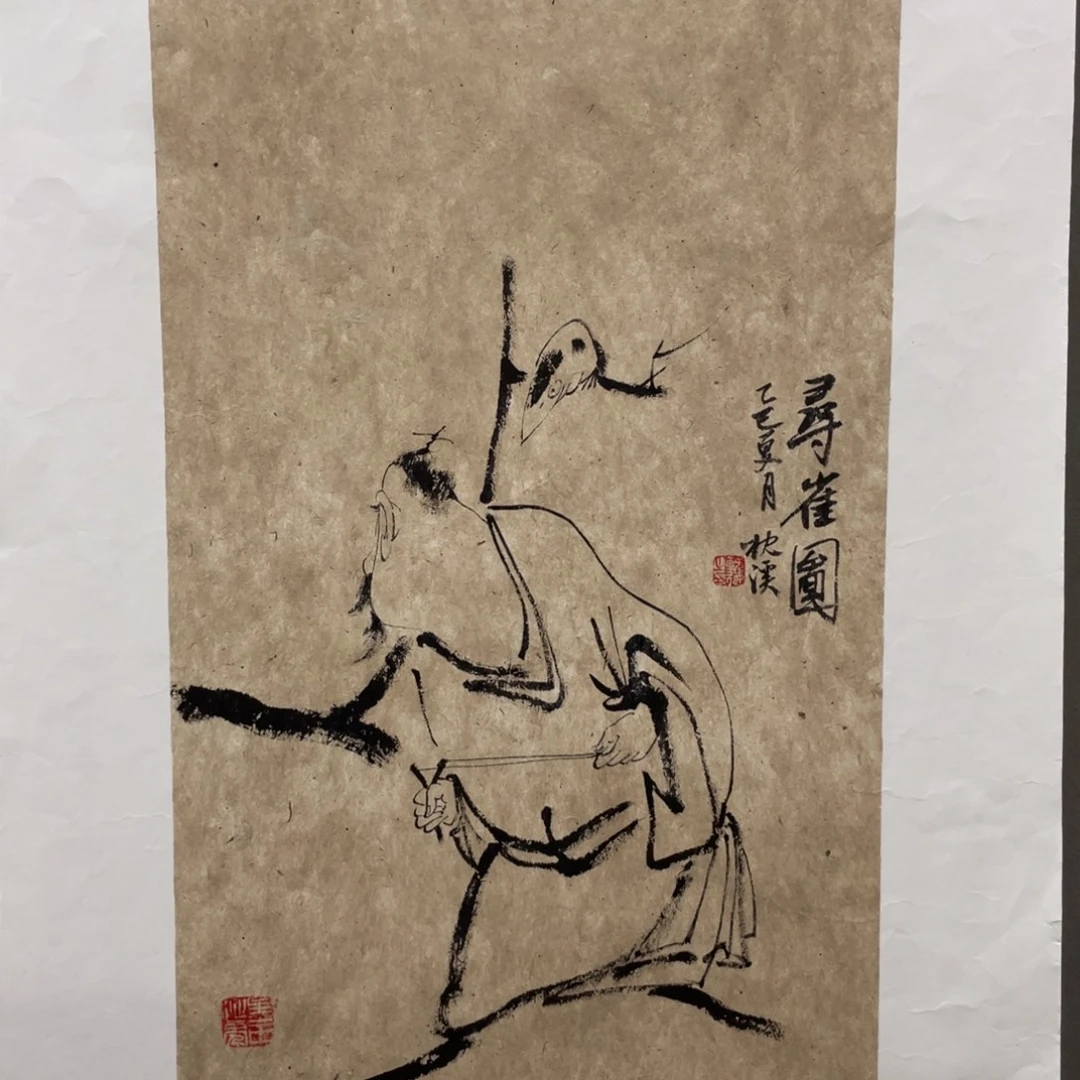 尋雀圖
乙巳夏月
枕溪